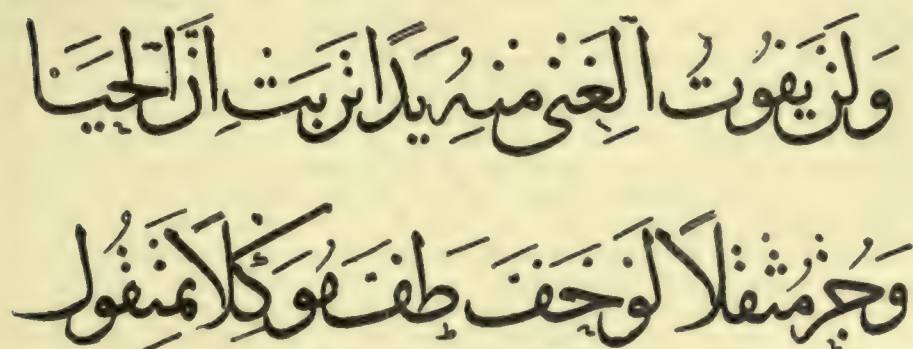 وَلَنْ يَفُوتَ الْغِنَى مِنْهُ يَدًا تَرِبَتْ إِنَّ الْحَيَا
وَجُزْ مُثْقَلًا لَوْ خَفَّ طِفْتَ مُوَكَّلًا بِمَنْقُولِ